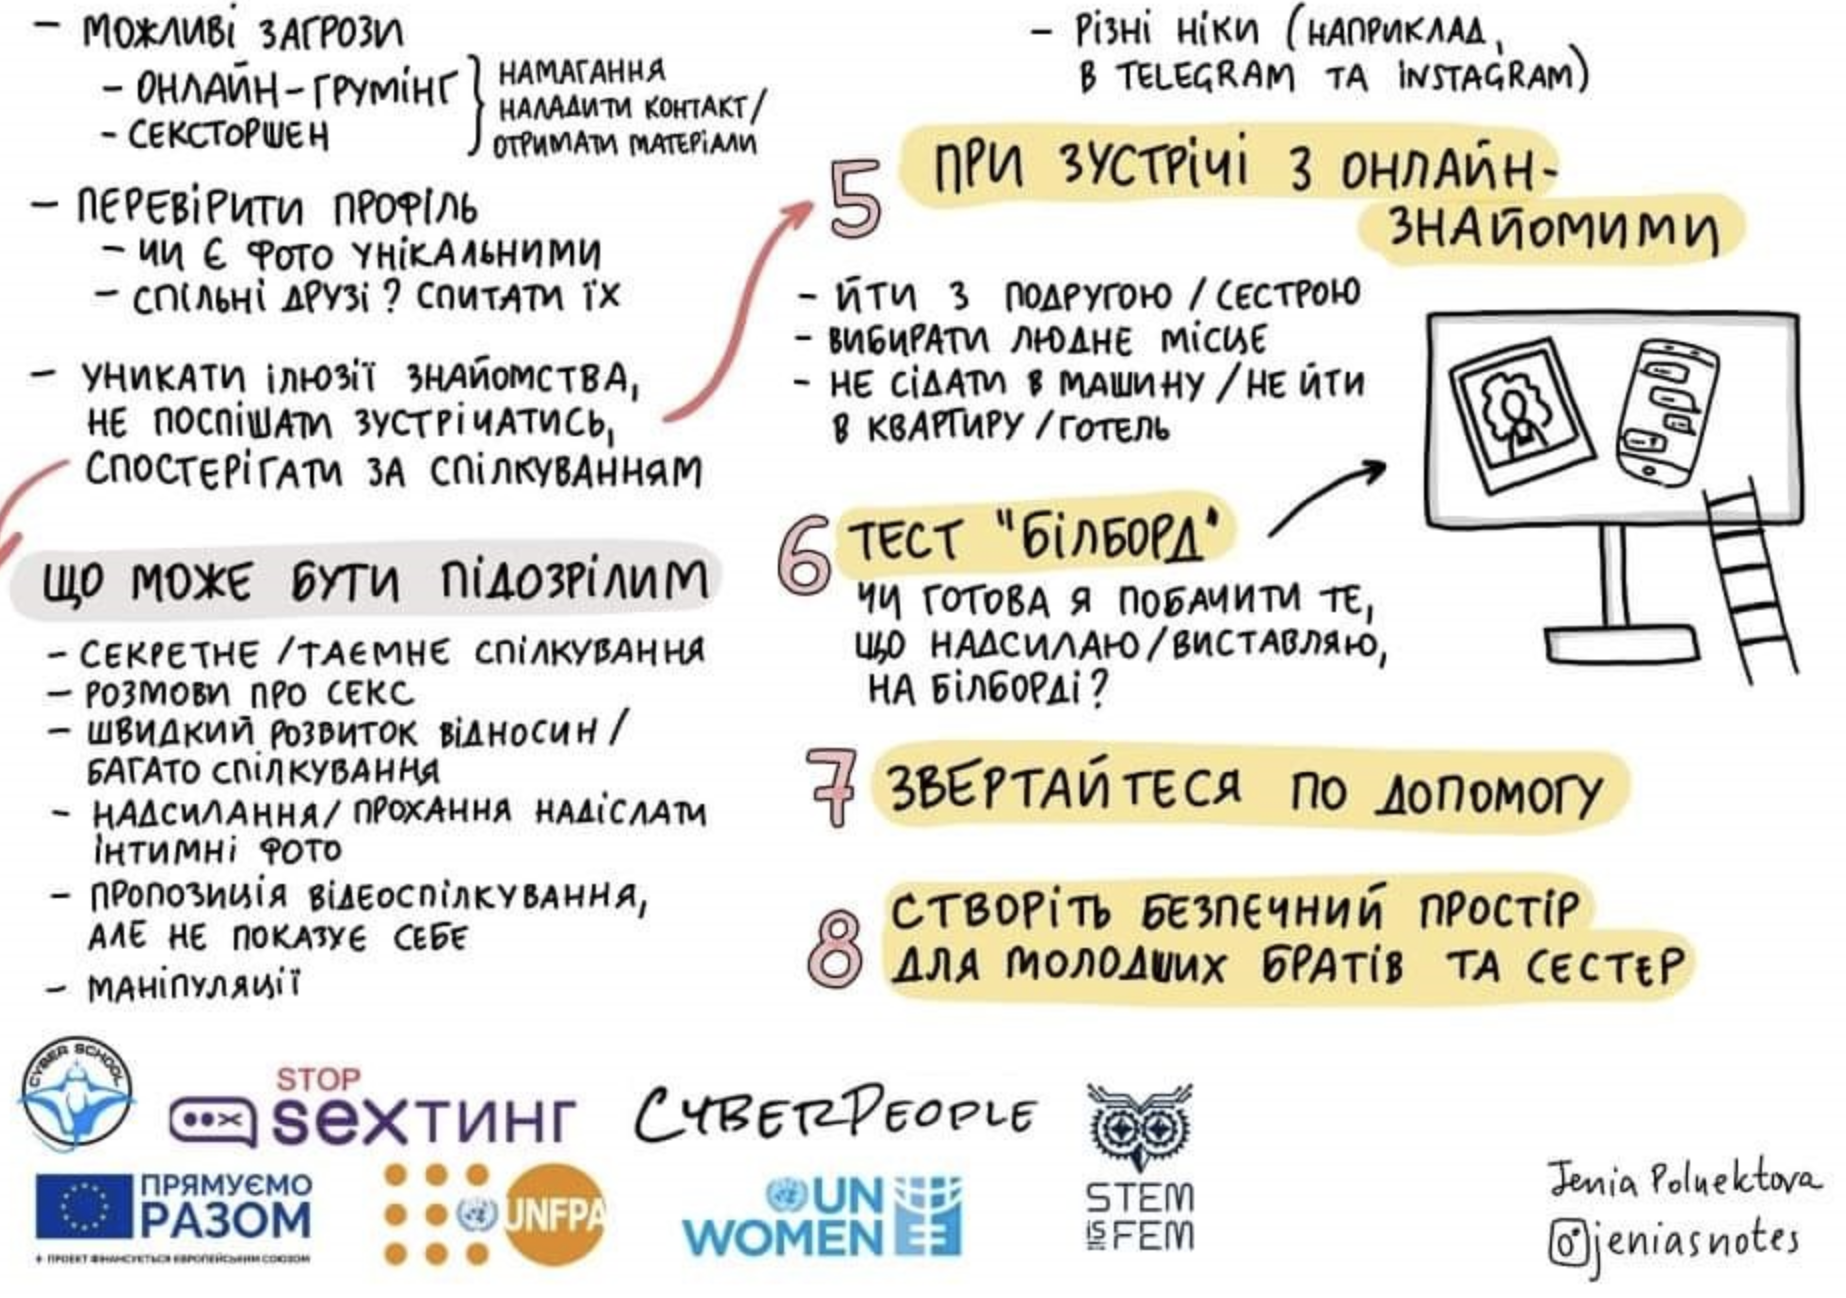 - МОЖЛИВІ ЗАГРОЗИ
- ОНЛАЙН-ГРУМІНГ
- СЕКСТОРШЕН
НАМАГАННЯ
НАЛАДИТИ КОНТАКТ/
ОТРИМАТИ МАТЕРІАЛИ
- ПЕРЕВІРИТИ ПРОФІЛЬ
- ЧИ Є ФОТО УНІКАЛЬНИМИ
- СПІЛЬНІ ДРУЗІ? СПИТАТИ ЇХ
- УНИКАТИ ІЛЮЗІЇ ЗНАЙОМСТВА,
НЕ ПОСПІШАТИ ЗУСТРІЧАТИСЬ,
СПОСТЕРІГАТИ ЗА СПІЛКУВАННЯМ
ЩО МОЖЕ БУТИ ПІДОЗРІЛИМ
- СЕКРЕТНЕ/ТАЄМНЕ СПІЛКУВАННЯ
- РОЗМОВИ ПРО СЕКС
- ШВИДКИЙ РОЗВИТОК ВІДНОСИН/
БАГАТО СПІЛКУВАННЯ
- НАДСИЛАННЯ/ПРОХАННЯ НАДІСЛАТИ
ІНТИМНІ ФОТО
- ПРОПОЗИЦІЯ ВІДЕОСПІЛКУВАННЯ,
АЛЕ НЕ ПОКАЗУЄ СЕБЕ
- МАНІПУЛЯЦІЇ
- РІЗНІ НІКИ (НАПРИКЛАД,
В TELEGRAM ТА INSTAGRAM)
5 ПРИ ЗУСТРІЧІ З ОНЛАЙН-
ЗНАЙОМИМИ
- ЙТИ З ПОДРУГОЮ/СЕСТРОЮ
- ВИБИРАТИ ЛЮДНЕ МІСЦЕ
- НЕ СІДАТИ В МАШИНУ/НЕ ЙТИ
В КВАРТИРУ/ГОТЕЛЬ
6 ТЕСТ "БІЛБОРД"
ЧИ ГОТОВА Я ПОБАЧИТИ ТЕ,
ЩО НАДСИЛАЮ/ВИСТАВЛЯЮ,
НА БІЛБОРДІ?
7 ЗВЕРТАЙТЕСЯ ПО ДОПОМОГУ
8 СТВОРІТЬ БЕЗПЕЧНИЙ ПРОСТІР
ДЛЯ МОЛОДШИХ БРАТІВ ТА СЕСТЕР
CYBER SCHOOL
STOP
sexтинг
CYBERPEOPLE
STEM
IS
FEM
ПРЯМУЄМО
РАЗОМ
ПРОЕКТ ФІНАНСУЄТЬСЯ ЄВРОПЕЙСЬКИМ СОЮЗОМ
UNFPA
UN
WOMEN
Jenia Poluektova
jeniasnotes